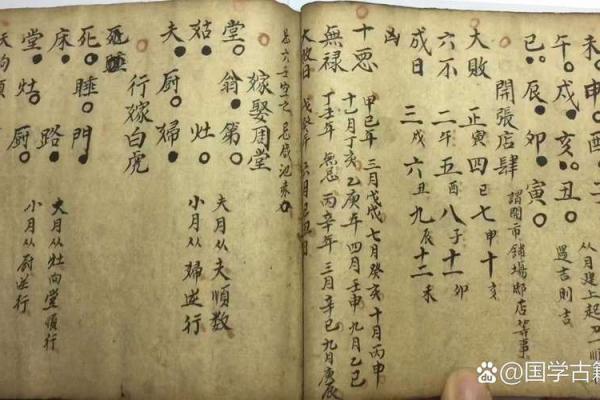 未 申 酉 子
从月建上起
午 戌 亥 丑
遇吉則吉
巳 辰 卯 寅
開張店肆
謂開市鋪場邸店等事
大敗 正寅 四巳 七申 十亥
六不 二午 五酉 八子 十一卯
成日 三戌 六丑 九辰 十二未
凶
十惡 甲己年 三月戊戌 七月癸亥 十月丙申
十一月丁亥 乙庚年 四月壬申 九月乙巳
無祿 丁壬年 無忌 丙辛年 三月辛巳 九月庚辰
大敗日 戊癸年 六月己丑日
嫁娶周堂
堂 翁 第
姑 灶
夫 廚 婦
夫月从夫順數
小月从婦逆行
行嫁白虎
死 睡 門
床 路
堂 灶 廚
大月从灶向堂順行
小月从廚逆行
天狗頭
Baidu @国学古籍